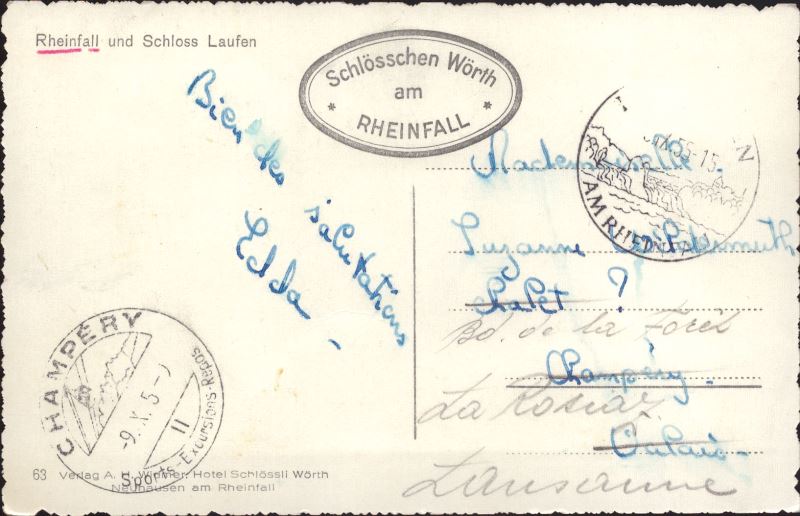 Rheinfall und Schloss Laufen
Schlösschen Wörth
am
* RHEINFALL *
Bien des salutations
Edda -
AM RHEINFALL
Mademoiselle
Suzanne
Chalet ?
Bd. de la Forêt
Champéry
La Rosiaz
Lausanne
CHAMPÉRY
-9.X.5
11
Sports-Excursions-Repos
63 Verlag A. H. Widmer, Hotel Schlössli Wörth
Neuhausen am Rheinfall